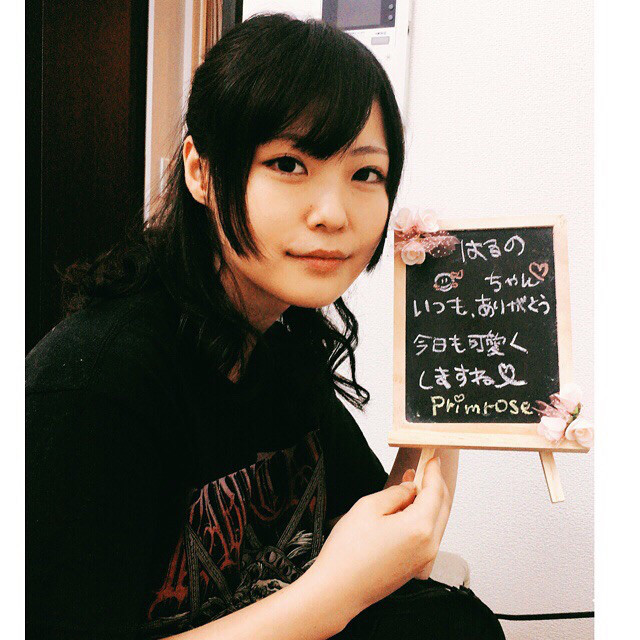 はるの
ちゃん♡
いつも、ありがとう
今日も可愛く
しますね♡
Primrose